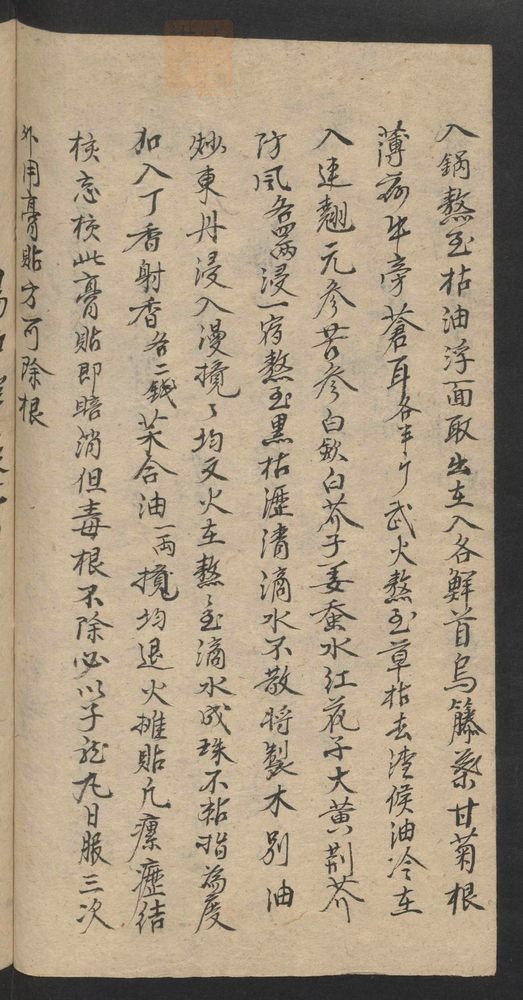 入鍋熬至枯油浮面取出在入各鮮首烏藤葉甘菊根
薄荷牛旁蒼耳各半斤武火熬至草枯去渣候油冷在
入連翹元參苦參白歛白芥子姜蚕水紅花子大黄荆芥
防風各四兩浸一宿熬至黒枯瀝清滴水不散將製木別油
炒東丹浸入漫攪々均文火在熬々至滴水成珠不粘指為度
加入丁香射香各二錢芙合油一兩攪均退火摊貼凡瘰癧結
核忘核此膏貼即暗消但毒根不除必以子龍丸日服三次
外用膏貼方可除根